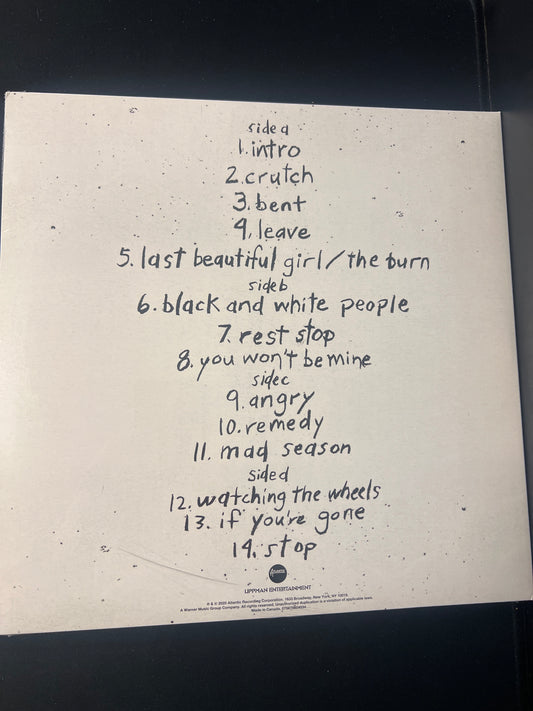 side a
1. intro
2. crutch
3. bent
4. leave
5. last beautiful girl/the burn
side b
6. black and white people
7. rest stop
8. you won't be mine
side c
9. angry
10. remedy
11. mad season
side d
12. watching the wheels
13. if you're gone
14. stop
LIPPMAN ENTERTAINMENT
Atlantic Recording Corporation, 1633 Broadway, New York, NY 10019.
A Warner Music Group Company. All rights reserved. Unauthorized duplication is a violation of applicable laws.
Made in Canada.